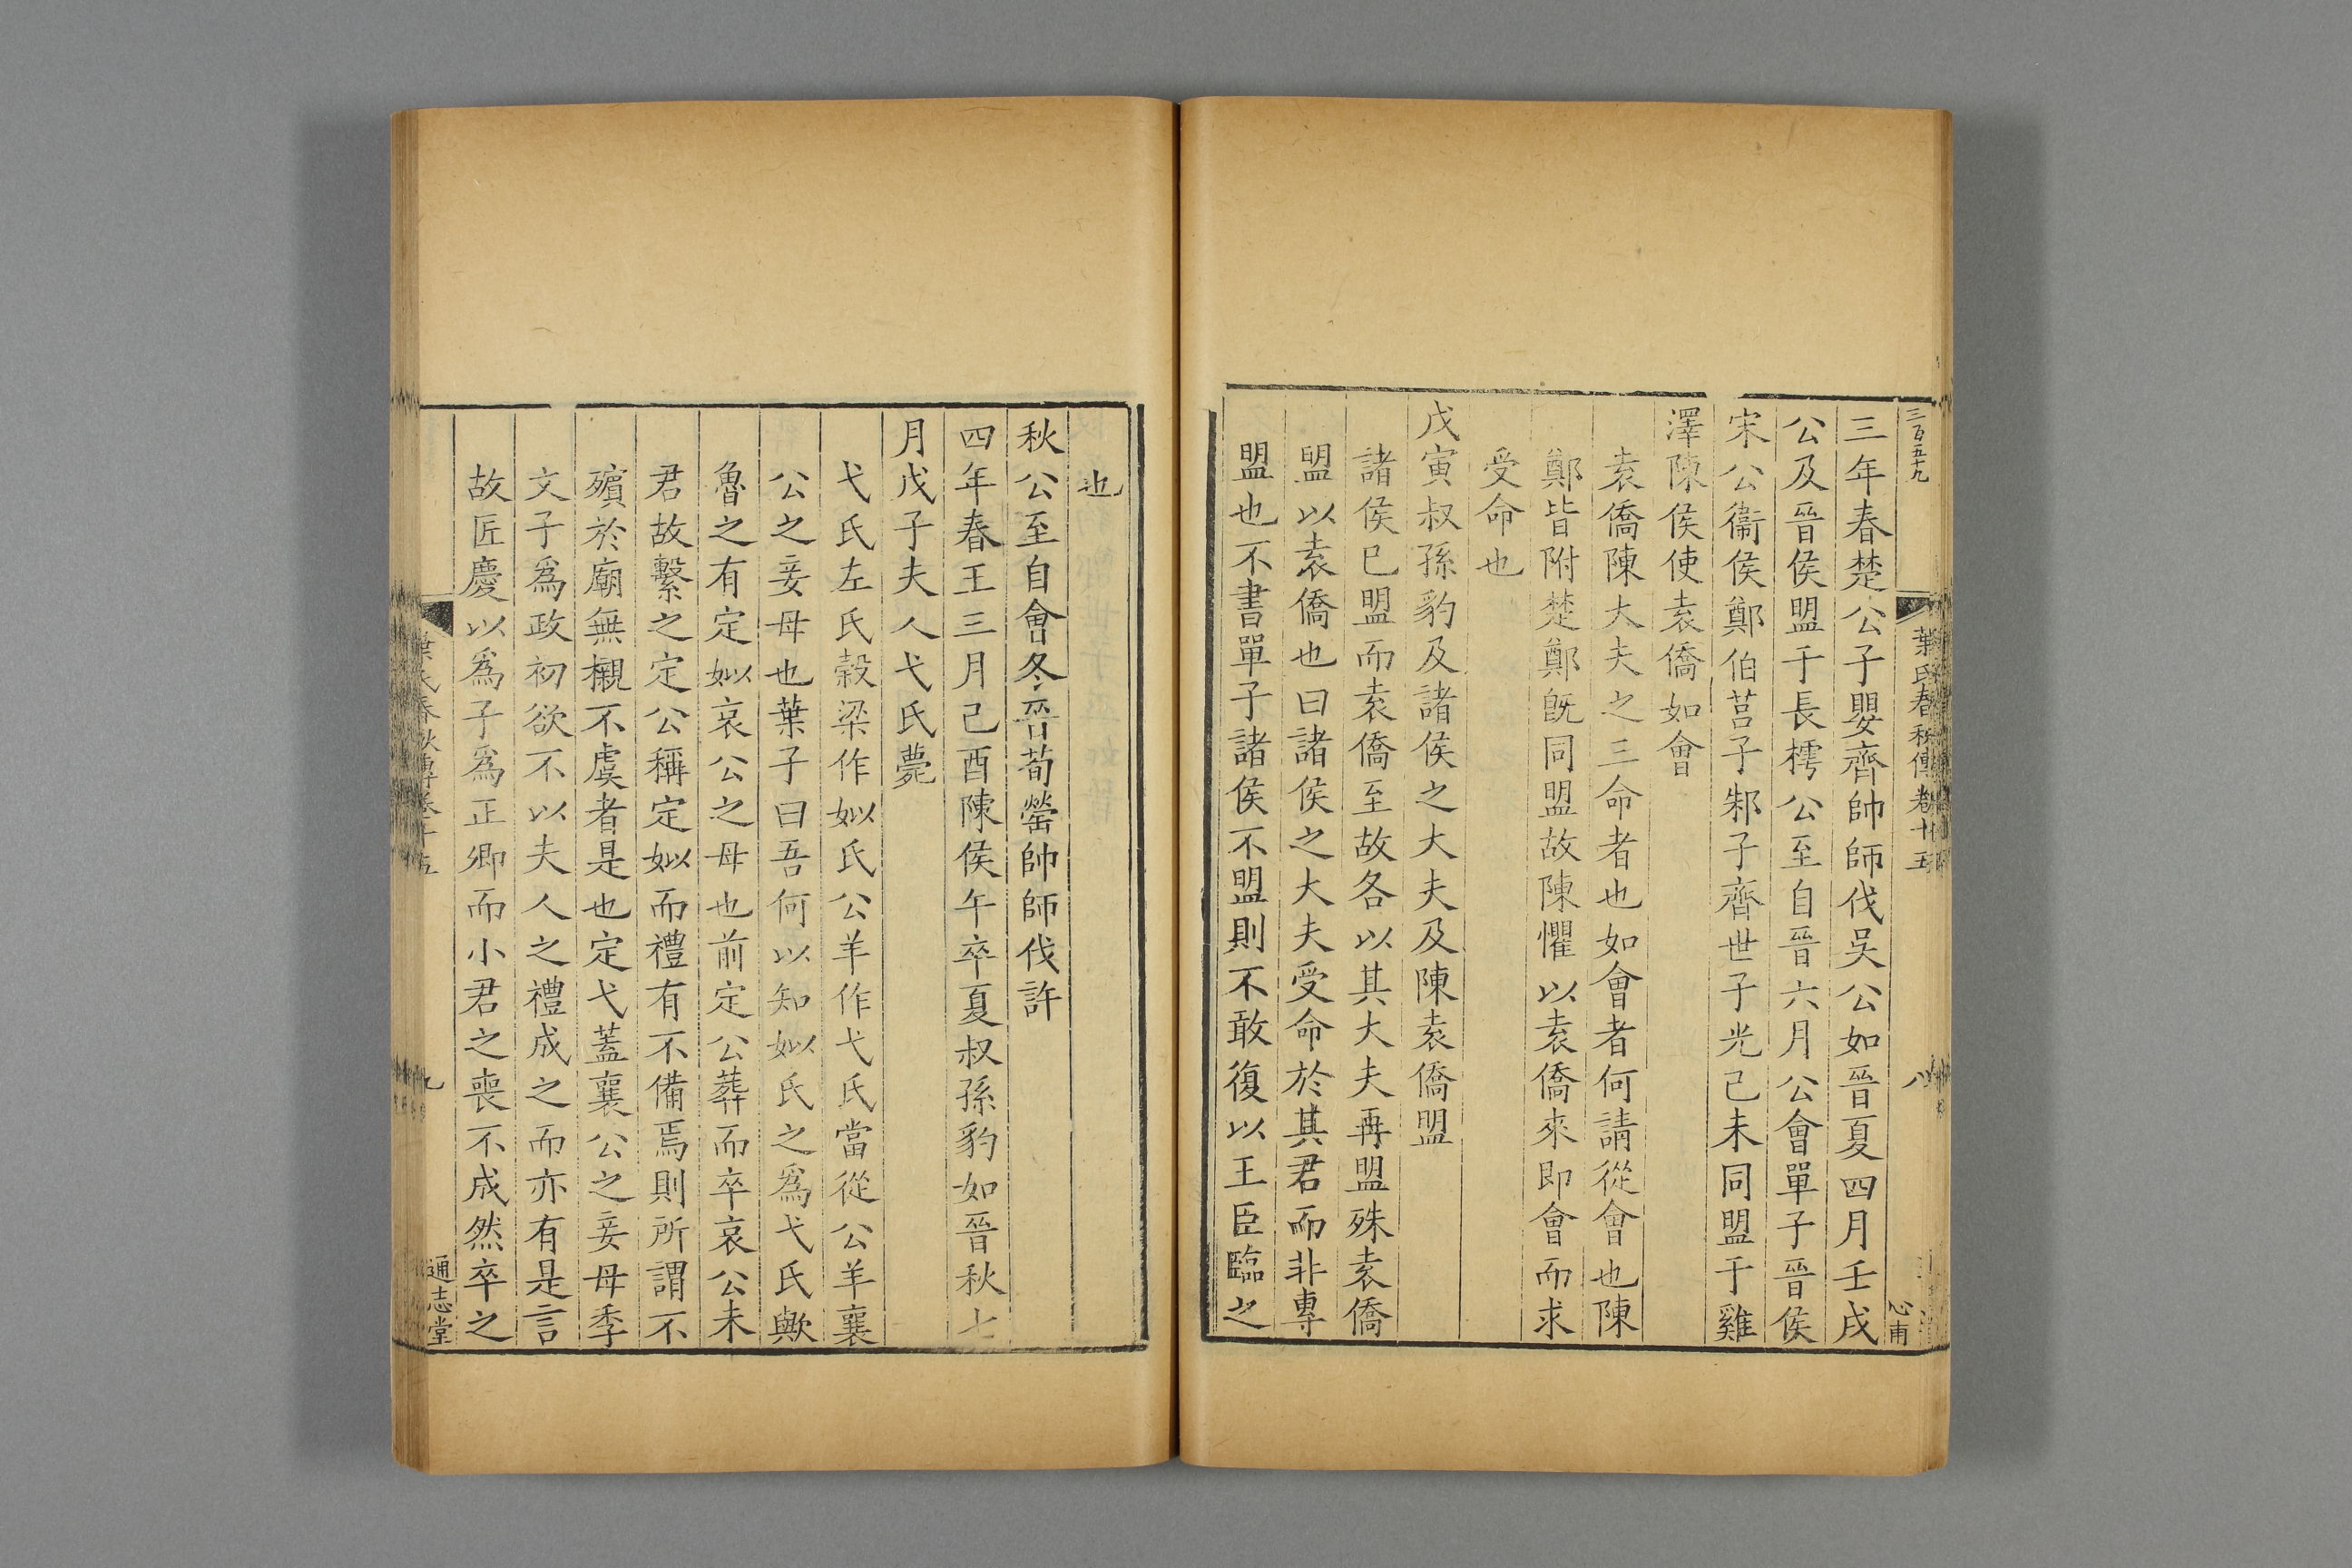 三百五十九
葉氏春秋傳卷十五
八
心甫
三年春楚公子嬰齊帥師伐吳公如晉夏四月壬戌
公及晉侯盟于長樗公至自晉六月公會單子晉侯
宋公衞侯鄭伯莒子邾子齊世子光己未同盟于雞
澤陳侯使袁僑如會
袁僑陳大夫之三命者也如會者何請從會也陳
鄭皆附楚鄭旣同盟故陳懼以袁僑來即會而求
受命也
戊寅叔孫豹及諸侯之大夫及陳袁僑盟
諸侯已盟而袁僑至故各以其大夫再盟殊袁僑
盟以袁僑也曰諸侯之大夫受命於其君而非專
盟也不書單子諸侯不盟則不敢復以王臣臨之
也
秋公至自會冬晉荀罃帥師伐許
四年春王三月己酉陳侯午卒夏叔孫豹如晉秋七
月戊子夫人弋氏薨
弋氏左氏穀梁作姒氏公羊作弋氏當從公羊襄
公之妾母也葉子曰吾何以知姒氏之爲弋氏歟
魯之有定姒哀公之母也前定公葬而卒哀公未
君故繫之定公稱定姒而禮有不備焉則所謂不
殯於廟無櫬不虞者是也定弋蓋襄公之妾母季
文子爲政初欲不以夫人之禮成之而亦有是言
故匠慶以爲子爲正卿而小君之喪不成然卒之
葉氏春秋傳卷十五
九
通志堂